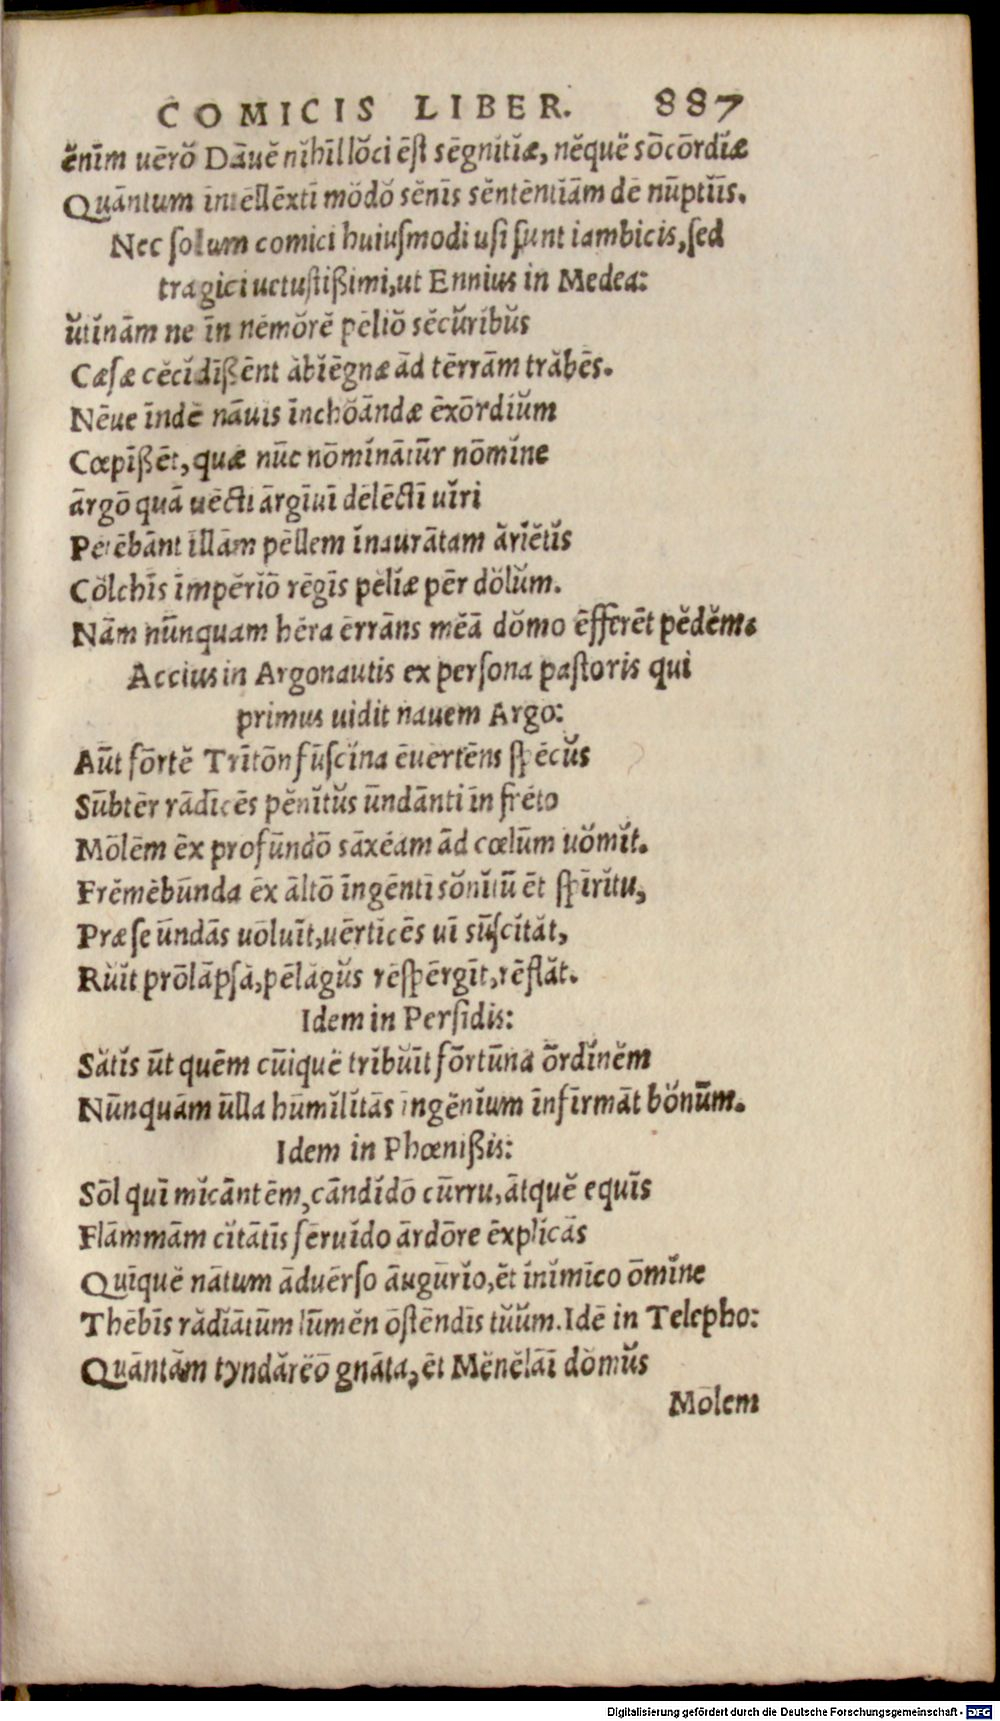 COMICIS LIBER. 887
ĕnīm uērŏ Dāuĕ nĭhīl lŏci ēst sēgnĭtĭæ, nĕquĕ sōcōrdĭæ
Quāntum īntēllēxtī mŏdŏ sĕnīs sēntēntĭām dē nūptĭīs.
Nec solum comici huiusmodi usi sunt iambicis, sed
tragici uetustißimi, ut Ennius in Medea:
ŭtĭnām ne īn nēmŏrĕ pēlĭō sĕcŭrĭbŭs
Cæsæ cĕcĭdīßēnt ăbĭēgnæ ād tērrām trăbēs.
Nēue īndĕ nāuis īnchŏāndæ ēxōrdĭŭm
Cœpīßēt, quæ nūc nōmĭnātūr nōmĭne
ārgō quā uēcti ārgīuī dēlēctī uĭri
Petēbānt īllām pēllem ĭnaurātam ărĭĕtĭs
Cōlchīs īmpĕrĭō rēgīs pĕlĭæ pēr dŏlŭm.
Nām nūnquam hĕra ērrāns mĕā dŏmo ēfferēt pĕdĕm.
Accius in Argonautis ex persona pastoris qui
primus uidit nauem Argo:
Aūt fōrtĕ Trītōn fūscĭna ēuērtēns spĕcŭs
Sūbtēr rādīcēs pĕnĭtŭs ūndānti īn frĕto
Mōlēm ēx profūndō sāxĕam ād cœlūm uŏmĭt.
Frĕmĕbūnda ēx āltō īngēntī sŏnĭtū ēt spīrĭtu,
Præ se ūndās uōluīt, uērtĭcēs uī sūscĭtăt,
Rŭĭt prōlāpsă, pĕlăgŭs rēspērgīt, rēflăt.
Idem in Persidis:
Sătĭs ūt quēm cūiquĕ trĭbŭīt fōrtūna ōrdĭnĕm
Nūnquām ūlla hŭmĭlĭtās īngĕnĭum īnfīrmāt bŏnūm.
Idem in Phœnißis:
Sōl quī mĭcāntēm, cāndĭdō cūrru, ātquĕ equīs
Flāmmām cĭtātīs fēruĭdo ārdōre ēxplĭcās
Quīquĕ nātum āduērso āugŭrĭo, ēt ĭnĭmīco ōmĭne
Thēbīs rădĭātūm lūmĕn ōstēndīs tŭŭm. Idē in Telepho:
Quāntām tyndărĕō gnāta, ēt Mĕnĕlāī dŏmŭs
Mōlem
Digitalisierung gefördert durch die Deutsche Forschungsgemeinschaft - DFG